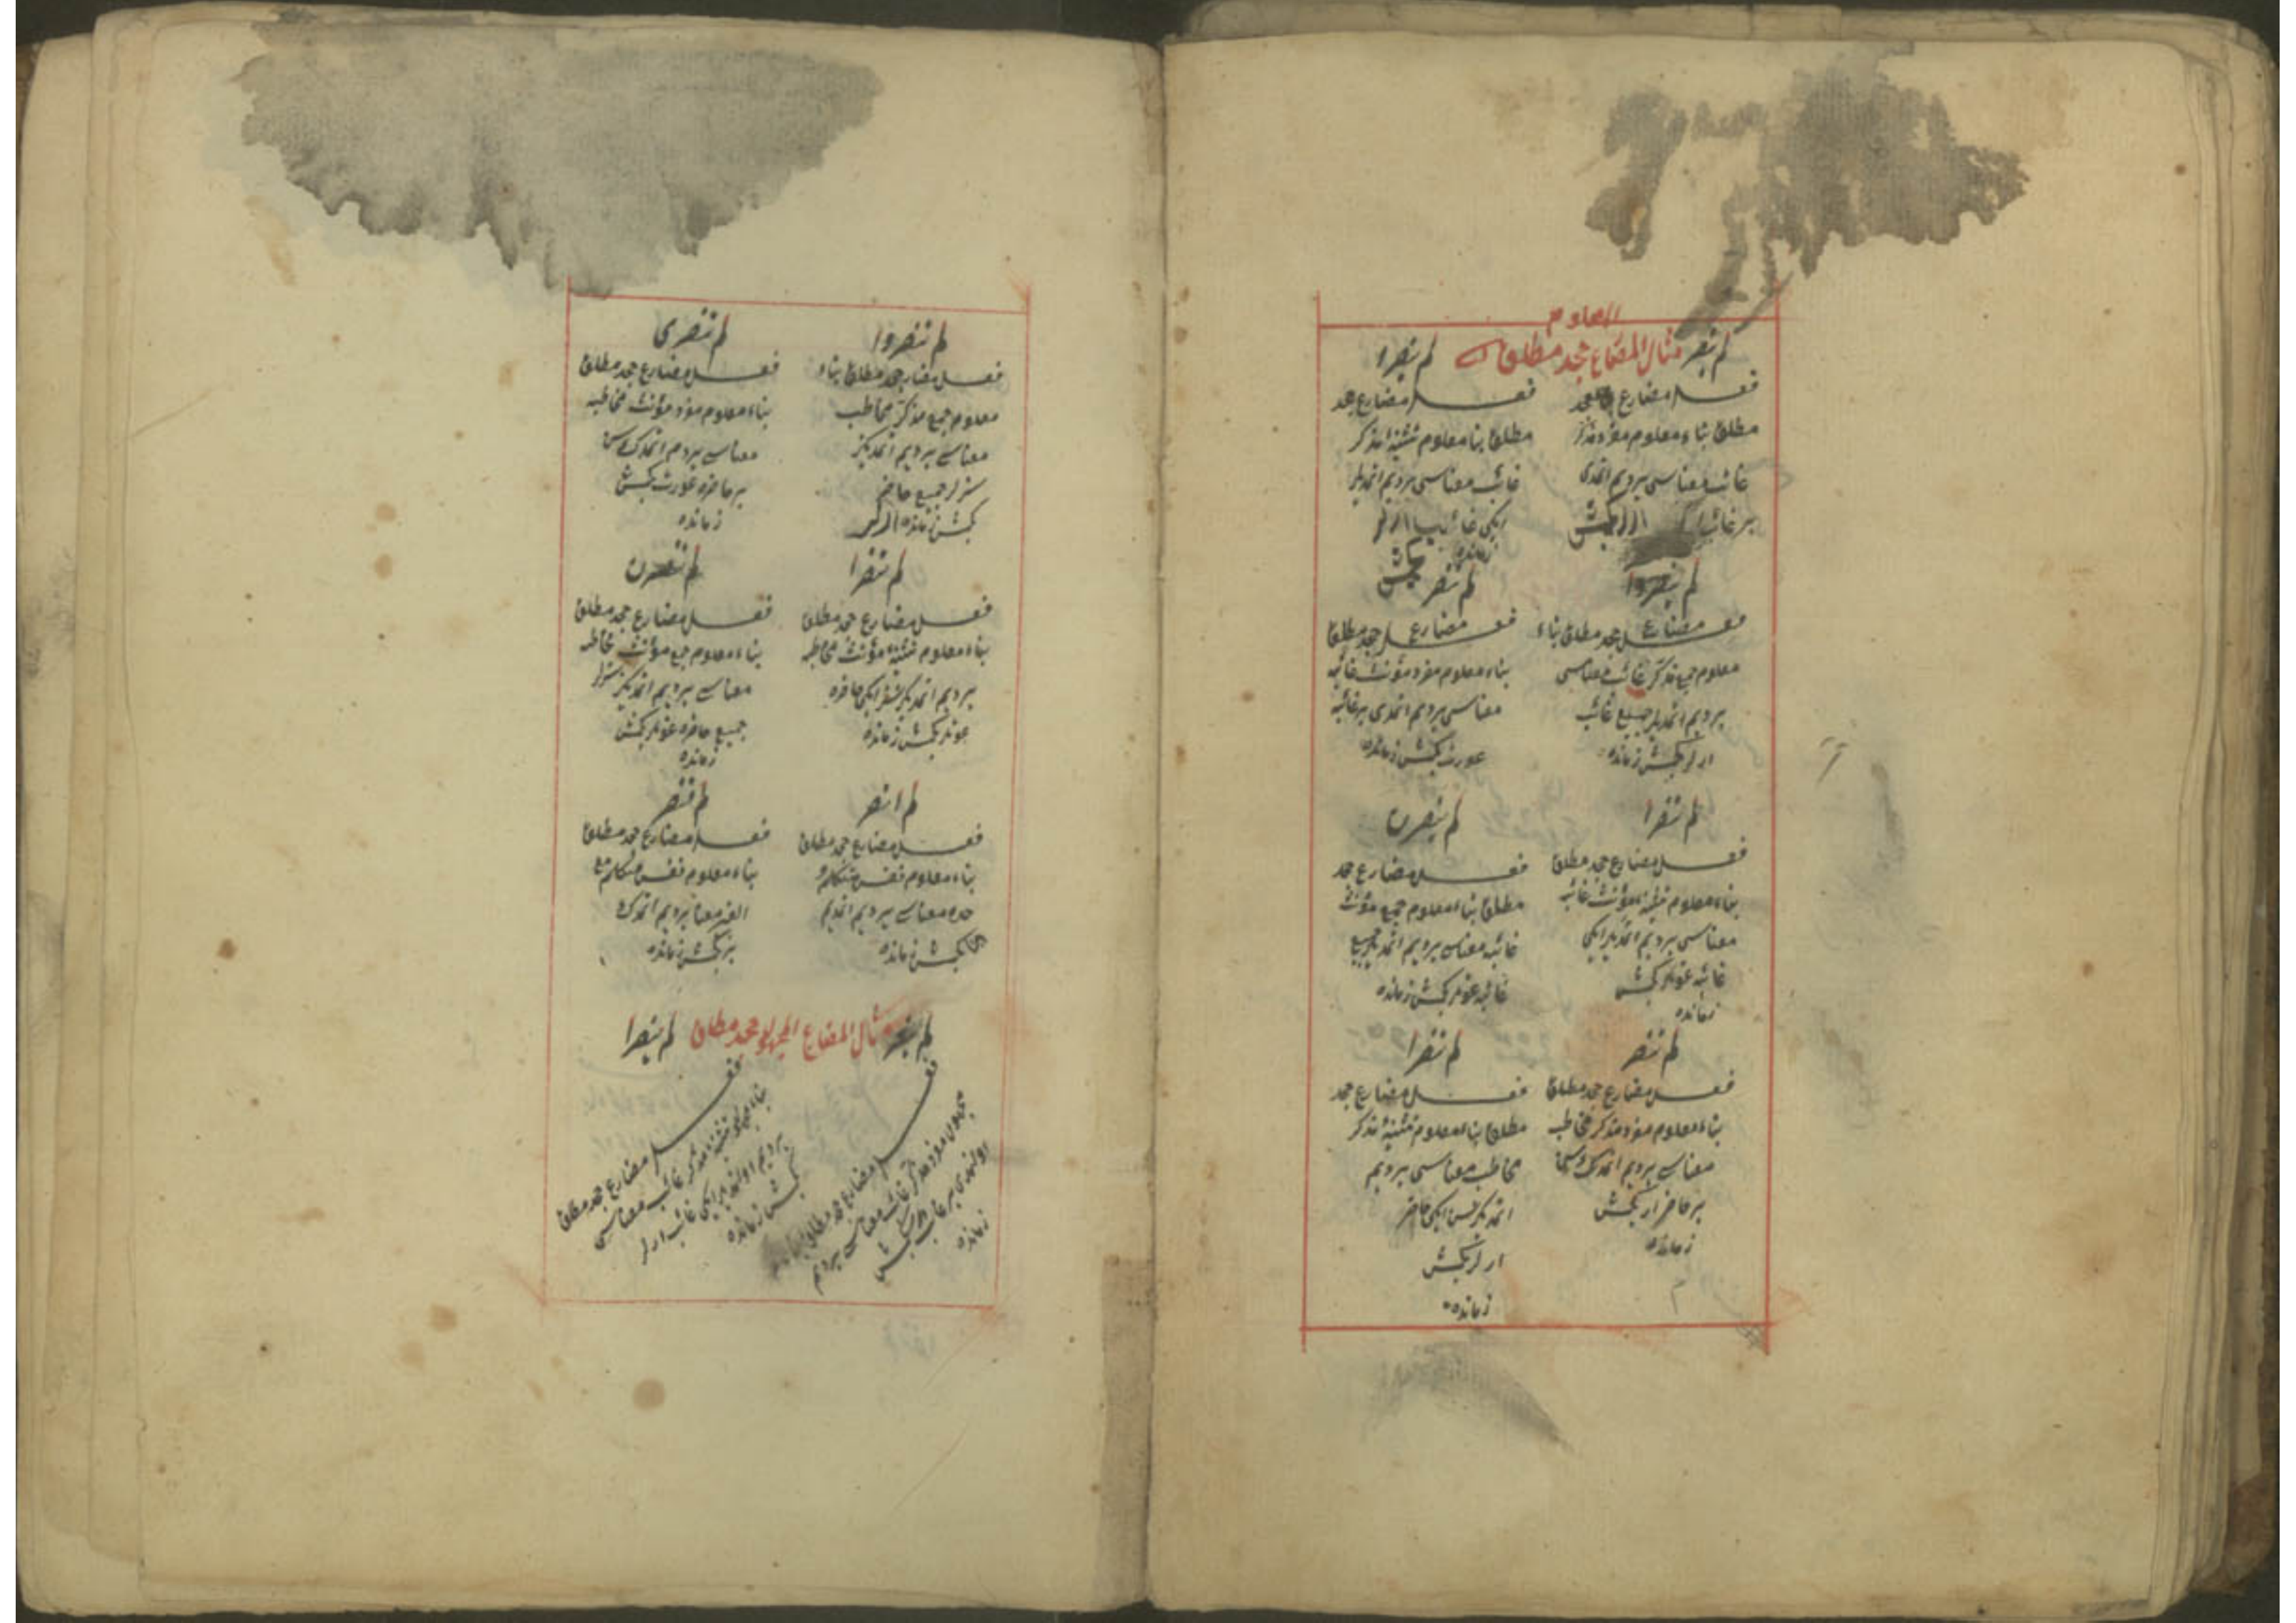 المعلوم
لم ينصر مثال المضارع جحد مطلق لم ينصرا
فعل مضارع جحد
مطلق بناء معلوم مفرد مذكر
غائب معناسى يرديم اتمدى
بر غائب ار كچمش
فعل مضارع جحد
مطلق بنا معلوم تثنيه مذكر
غائب معناسى يرديم اتمديلر
ايكى غائب ارلر
زمانده كچمش
لم ينصروا
فعل مضارع جحد مطلق بناء
معلوم جمع مذكر غائب معناسى
يرديم اتمديلر جميع غائب
ارلر كچمش زمانده
لم تنصر
فعل مضارع جحد مطلق
بناء معلوم مفرد مؤنث غائبه
معناسى يرديم اتمدى بر غائبه
عورت كچمش زمانده
لم تنصرا
فعل مضارع جحد مطلق
بناء معلوم تثنيه مؤنث غائبه
معناسى يرديم اتمديلر ايكى
غائبه عونلر كچمش
زمانده
لم ينصرن
فعل مضارع جحد
مطلق بناء معلوم جمع مؤنث
غائبه معناسى يرديم اتمديلر جميع
غائبه عونلر كچمش زمانده
لم تنصر
فعل مضارع جحد مطلق
بناء معلوم مفرد مذكر مخاطب
معناسى يرديم اتمدك
بر حاضر ار كچمش
زمانده
لم تنصرا
فعل مضارع جحد
مطلق بناء معلوم تثنيه مذكر
مخاطب معناسى يرديم
اتمديكز ايكى حاضر
ارلر كچمش
زمانده
لم تنصروا
فعل مضارع جحد مطلق بناء
معلوم جمع مذكر مخاطب
معناسى يرديم اتمديكز
سزلر جميع حاضر
كچمش زمانده ارلر
لم تنصرى
فعل مضارع جحد مطلق
بناء معلوم مفرد مؤنث مخاطبه
معناسى يردم اتمدك سن
بر حاضره عورت كچمش
زمانده
لم تنصرا
فعل مضارع جحد مطلق
بناء معلوم تثنيه مؤنث مخاطبه
يرديم اتمديكز ايكى حاضره
عونلر كچمش زمانده
لم تنصرن
فعل مضارع جحد مطلق
بناء معلوم جمع مؤنث مخاطبه
معناسى يرديم اتمديكز سزلر
جميع حاضره عونلر كچمش
زمانده
لم انصر
فعل مضارع جحد مطلق
بناء معلوم نفس متكلم
وحده معناسى يرديم اتمديم
كچمش زمانده
لم ننصر
فعل مضارع جحد مطلق
بناء معلوم نفس متكلم مع
الغير معنا يرديم اتمدك
بز كچمش زمانده
لم ينصر مثال المضارع المجهول جحد مطلق لم ينصرا
فعل مضارع جحد مطلق بناء
مجهول مفرد مذكر غائب معناسى يرديم
اولنمدى بر غائب ار كچمش
زمانده
فعل مضارع جحد مطلق
بناء مجهول تثنيه مذكر غائب معناسى
يرديم اولنمديلر ايكى غائب ارلر
كچمش زمانده